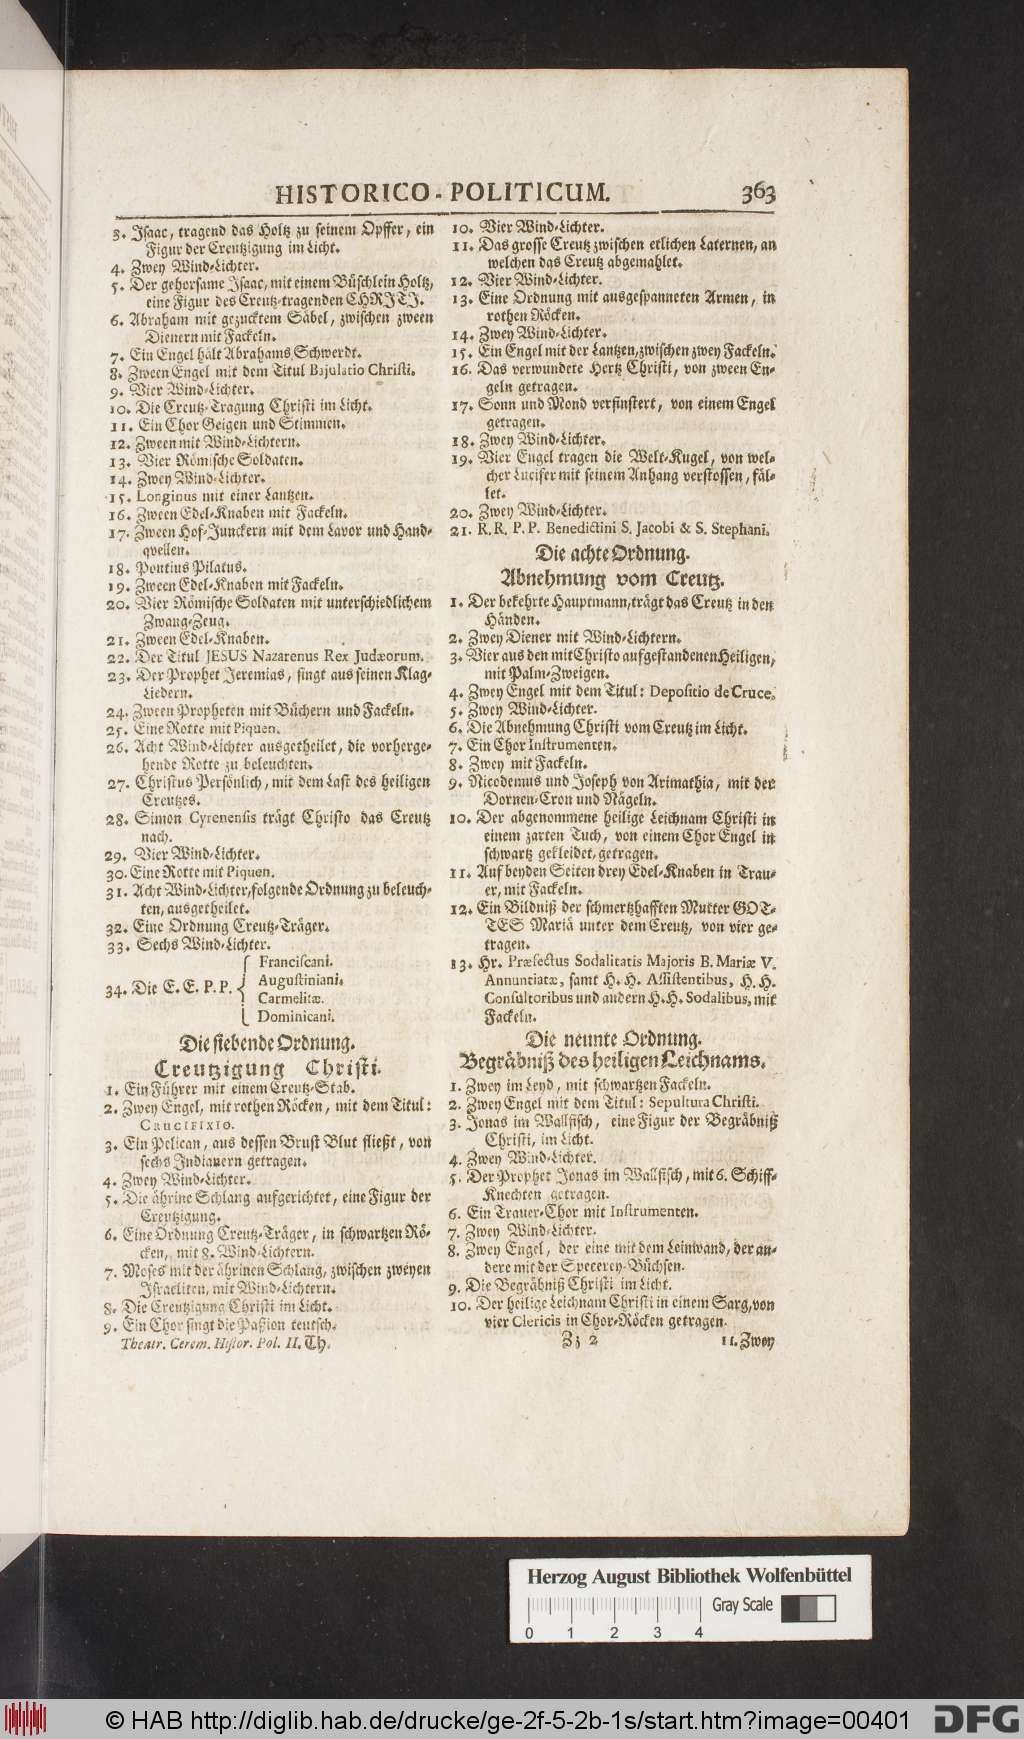 HISTORICO-POLITICUM. 363
3. Isaac, tragend das Holtz zu seinem Opffer, ein
Figur der Creutzigung im Licht.
4. Zwey Wind-Lichter.
5. Der gehorsame Isaac, mit einem Büschlein Holtz,
eine Figur des Creutz-tragenden CHRITI.
6. Abraham mit gezucktem Säbel, zwischen zween
Dienern mit Fackeln.
7. Ein Engel hält Abrahams Schwerdt.
8. Zween Engel mit dem Titul Bajulatio Christi.
9. Vier Wind-Lichter.
10. Die Creutz-Tragung Christi im Licht.
11. Ein Chor Geigen und Stimmen.
12. Zween mit Wind-Lichtern.
13. Vier Römische Soldaten.
14. Zwey Wind-Lichter.
15. Longinus mit einer Lantzen.
16. Zween Edel-Knaben mit Fackeln.
17. Zween Hof-Junckern mit dem Lavor und Hand-
qvellen.
18. Pontius Pilatus.
19. Zween Edel-Knaben mit Fackeln.
20. Vier Römische Soldaten mit unterschiedlichem
Zwang-Zeug.
21. Zween Edel-Knaben.
22. Der Titul JESUS Nazarenus Rex Judæorum.
23. Der Prophet Jeremias, singt aus seinen Klag-
Liedern.
24. Zween Propheten mit Büchern und Fackeln.
25. Eine Rotte mit Piquen.
26. Acht Wind-Lichter ausgetheilet, die vorherge-
hende Rotte zu beleuchten.
27. Christus Persönlich, mit dem Last des heiligen
Creutzes.
28. Simon Cyrenensis trägt Christo das Creutz
nach.
29. Vier Wind-Lichter.
30. Eine Rotte mit Piquen.
31. Acht Wind-Lichter, folgende Ordnung zu beleuch-
ten, ausgetheilet.
32. Eine Ordnung Creutz-Träger.
33. Sechs Wind-Lichter.
34. Die E. E. P. P. { Franciscani.
Augustiniani.
Carmelitæ.
Dominicani.
Die siebende Ordnung.
Creutzigung Christi.
1. Ein Führer mit einem Creutz-Stab.
2. Zwey Engel, mit rothen Röcken, mit dem Titul:
CRUCIFIXIO.
3. Ein Pelican, aus dessen Brust Blut fließt, von
sechs Indianern getragen.
4. Zwey Wind-Lichter.
5. Die ährine Schlang aufgerichtet, eine Figur der
Creutzigung.
6. Eine Ordnung Creutz-Träger, in schwartzen Rö-
cken, mit 8. Wind-Lichtern.
7. Moses mit der ährinen Schlang, zwischen zweyen
Israeliten, mit Wind-Lichtern.
8. Die Creutzigung Christi im Licht.
9. Ein Chor singt die Paßion teutsch.
Theatr. Cerem. Histor. Pol. II. Th.
10. Vier Wind-Lichter.
11. Das grosse Creutz zwischen etlichen Laternen, an
welchen das Creutz abgemahlet.
12. Vier Wind-Lichter.
13. Eine Ordnung mit ausgespanneten Armen, in
rothen Röcken.
14. Zwey Wind-Lichter.
15. Ein Engel mit der Lantzen, zwischen zwey Fackeln.
16. Das verwundete Hertz Christi, von zween En-
geln getragen.
17. Sonn und Mond verfinstert, von einem Engel
getragen.
18. Zwey Wind-Lichter.
19. Vier Engel tragen die Welt-Kugel, von wel-
cher Lucifer mit seinem Anhang verstossen, fäl-
let.
20. Zwey Wind-Lichter.
21. R. R. P. P. Benedictini S. Jacobi & S. Stephani.
Die achte Ordnung.
Abnehmung vom Creutz.
1. Der bekehrte Hauptmann, trägt das Creutz in den
Händen.
2. Zwey Diener mit Wind-Lichtern.
3. Vier aus den mit Christo aufgestandenen Heiligen,
mit Palm-Zweigen.
4. Zwey Engel mit dem Titul: Depositio de Cruce.
5. Zwey Wind-Lichter.
6. Die Abnehmung Christi vom Creutz im Licht.
7. Ein Chor Instrumenten.
8. Zwey mit Fackeln.
9. Nicodemus und Joseph von Arimathia, mit der
Dornen-Cron und Nägeln.
10. Der abgenommene heilige Leichnam Christi in
einem zarten Tuch, von einem Chor Engel in
schwartz gekleidet, getragen.
11. Auf beyden Seiten drey Edel-Knaben in Trau-
er, mit Fackeln.
12. Ein Bildniß der schmertzhafften Mutter GOT-
TES Mariä unter dem Creutz, von vier ge-
tragen.
13. Hr. Præfectus Sodalitatis Majoris B. Mariæ V.
Annuntiatæ, samt H. H. Assistentibus, H. H.
Consultoribus und andern H. H. Sodalibus, mit
Fackeln.
Die neunte Ordnung.
Begräbniß des heiligen Leichnams.
1. Zwey im Leyd, mit schwartzen Fackeln.
2. Zwey Engel mit dem Titul: Sepultura Christi.
3. Jonas im Wallfisch, eine Figur der Begräbniß
Christi, im Licht.
4. Zwey Wind-Lichter.
5. Der Prophet Jonas im Wallfisch, mit 6. Schiff-
Knechten getragen.
6. Ein Trauer-Chor mit Instrumenten.
7. Zwey Wind-Lichter.
8. Zwey Engel, der eine mit dem Leinwand, der an-
dere mit der Specerey-Büchsen.
9. Die Begräbniß Christi im Licht.
10. Der heilige Leichnam Christi in einem Sarg, von
vier Clericis in Chor-Röcken getragen.
Zz 2 11. Zwey
Herzog August Bibliothek Wolfenbüttel
Gray Scale
0 1 2 3 4
© HAB http://diglib.hab.de/drucke/ge-2f-5-2b-1s/start.htm?image=00401 DFG